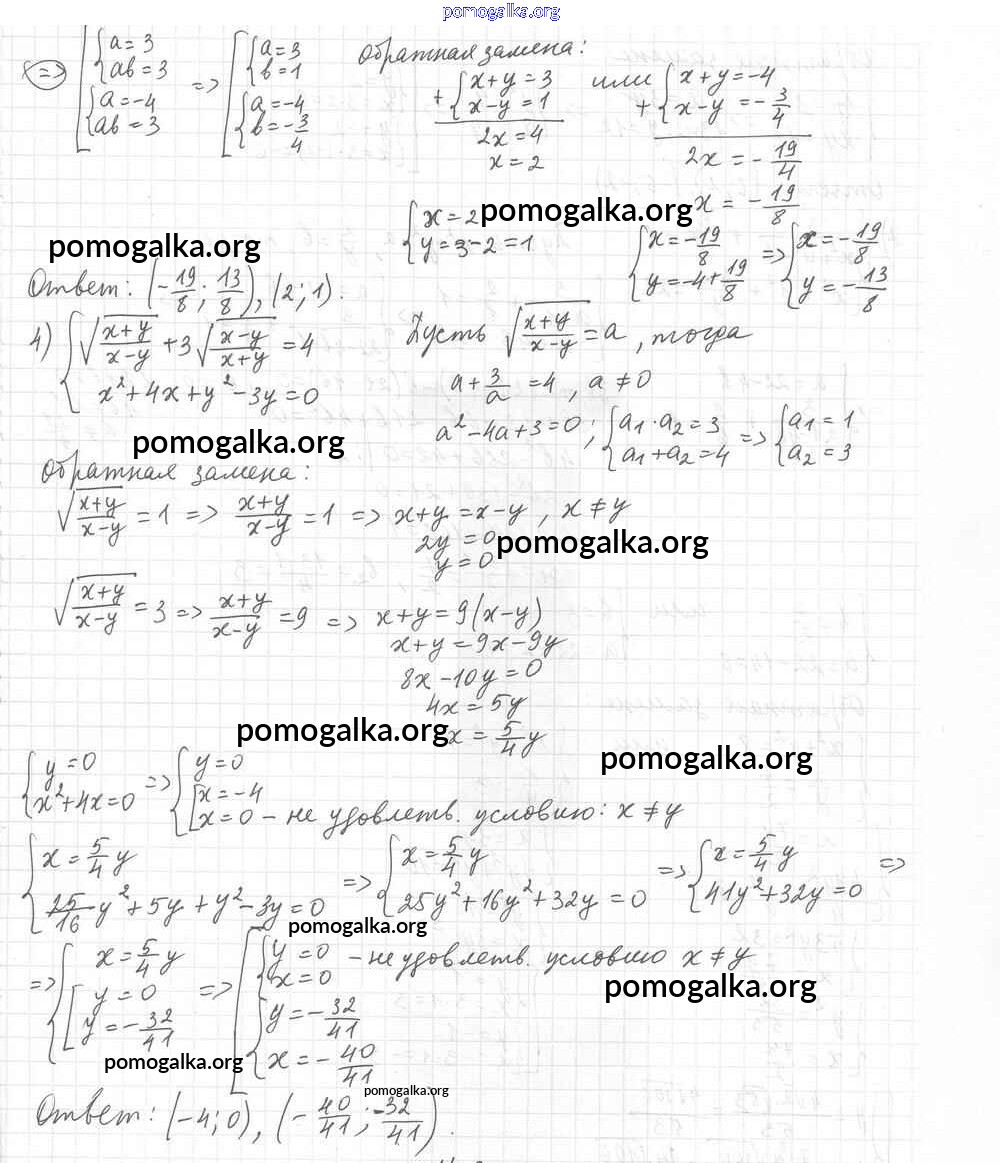 pomogalka.org
=> [ { a = 3 ; ab = 3 } ; { a = -4 ; ab = 3 } => [ { a = 3 ; b = 1 } ; { a = -4 ; b = -3/4 }
Обратная замена:
+ { x+y = 3 ; x-y = 1 или + { x+y = -4 ; x-y = -3/4
2x = 4 2x = -19/4
x = 2 x = -19/8
{ x = 2 ; y = 3-2 = 1 pomogalka.org
{ x = -19/8 ; y = -4+19/8 => { x = -19/8 ; y = -13/8
pomogalka.org
Ответ: (-19/8; 13/8), (2; 1).
4) { √((x+y)/(x-y)) + 3√((x-y)/(x+y)) = 4 ; x² + 4x + y² - 3y = 0
Пусть √((x+y)/(x-y)) = a, тогда
a + 3/a = 4, a ≠ 0
a² - 4a + 3 = 0; { a₁·a₂ = 3 ; a₁+a₂ = 4 => { a₁ = 1 ; a₂ = 3
pomogalka.org
Обратная замена:
√((x+y)/(x-y)) = 1 => (x+y)/(x-y) = 1 => x+y = x-y, x ≠ y
2y = 0
pomogalka.org
y = 0
√((x+y)/(x-y)) = 3 => (x+y)/(x-y) = 9 => x+y = 9(x-y)
x+y = 9x-9y
8x-10y = 0
4x = 5y
pomogalka.org
x = 5/4 y
pomogalka.org
{ y = 0 ; x²+4x = 0 => { y = 0 ; [ x = -4 ; x = 0 - не удовлетв. условию: x ≠ y
{ x = 5/4 y ; 25/16 y² + 5y + y² - 3y = 0 => { x = 5/4 y ; 25y² + 16y² + 32y = 0 => { x = 5/4 y ; 41y² + 32y = 0 =>
pomogalka.org
=> { x = 5/4 y ; [ y = 0 ; y = -32/41 => [ { y = 0 ; x = 0 - не удовлетв. условию x ≠ y ; { y = -32/41 ; x = -40/41
pomogalka.org
pomogalka.org
pomogalka.org
Ответ: (-4; 0), (-40/41; -32/41).